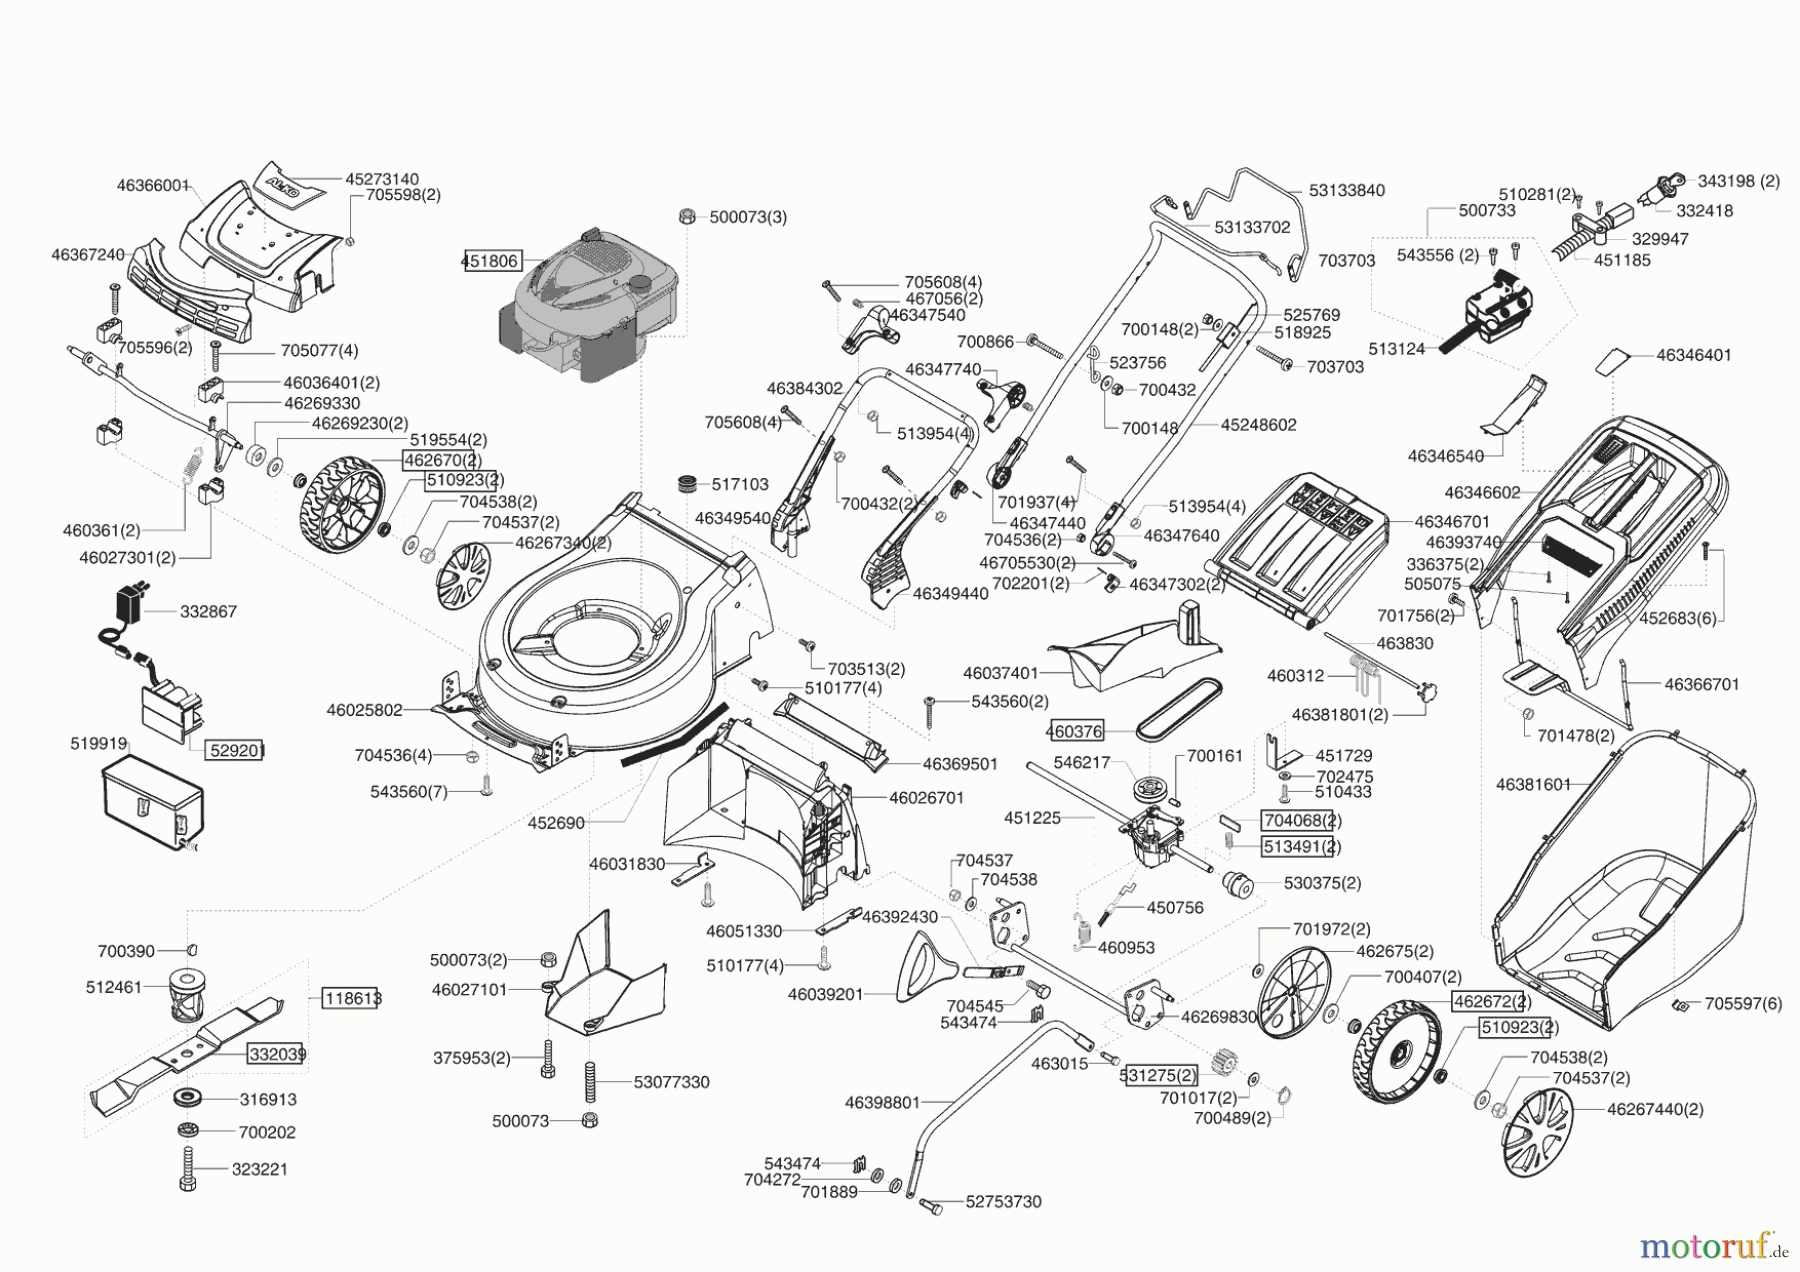 46366001
AL-KO
45273140
705598(2)
46367240
705596(2)
705077(4)
46036401(2)
46269330
46269230(2)
519554(2)
462670(2)
510923(2)
704538(2)
704537(2)
46267340(2)
460361(2)
46027301(2)
332867
52920
519919
500073(3)
451806
517103
46025802
704536(4)
543560(7)
452690
703513(2)
510177(4)
543560(2)
46369501
46026701
46031830
46051330
510177(4)
700390
512461
118613
332039
316913
700202
323221
500073(2)
46027101
375953(2)
53077330
500073
705608(4)
467056(2)
46347540
46384302
705608(4)
513954(4)
700432(2)
46349540
46349440
53133840
53133702
703703
700148(2)
525769
518925
700866
523756
703703
46347740
700432
700148
45248602
701937(4)
513954(4)
46347440
704536(2)
46347640
46705530(2)
702201(2)
46347302(2)
46037401
460376
546217
700161
451729
702475
510433
451225
704068(2)
513491(2)
530375(2)
450756
460953
704537
704538
46392430
46039201
704545
543474
46269830
701972(2)
462675(2)
700407(2)
462672(2)
510923(2)
704538(2)
704537(2)
46267440(2)
463015
531275(2)
701017(2)
700489(2)
46398801
543474
704272
701889
52753730
343198 (2)
332418
510281(2)
500733
329947
543556 (2)
451185
513124
46346401
46346540
46346602
46346701
46393740
336375(2)
505075
701756(2)
452683(6)
463830
460312
46381801(2)
46366701
701478(2)
46381601
705597(6)
motoruf.de